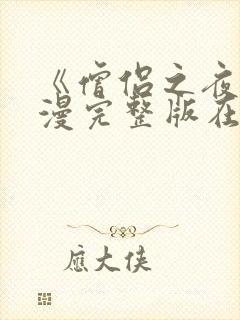 《僧侣之夜
漫完整版在
应大侠